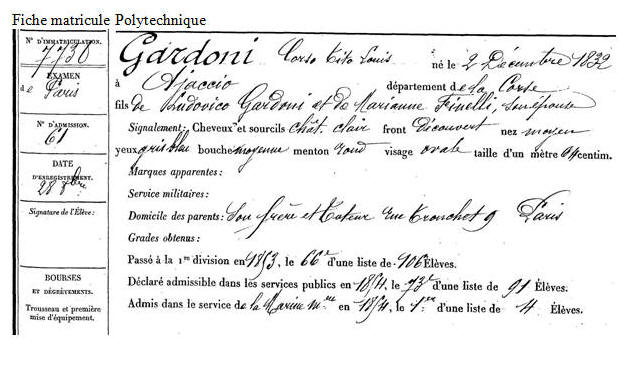 Fiche matricule Polytechnique
N° D'IMMATRICULATION.
7730
EXAMEN
de Paris
N° D'ADMISSION.
61
DATE
D'ENREGISTREMENT.
28 8bre
Signature de l'Élève :
BOURSES
ET
DÉGRÈVEMENTS.
Trousseau et première
mise d'équipement.
Gardoni Corso Tito Louis né le 2 Décembre 1832
à Ajaccio département de la Corse
fils de Ludovico Gardoni et de Marianne Finelli, son épouse
Signalement: Cheveux et sourcils chât. clair front découvert nez moyen
yeux gris bleu bouche moyenne menton rond visage ovale taille d'un mètre 64 centim.
Marques apparentes :
Service militaires :
Domicile des parents: Son frère et tuteur rue Tronchet 9 Paris
Grades obtenus :
Passé à la 1re division en 1853, le 66e d'une liste de 106 Élèves.
Déclaré admissible dans les services publics en 1854, le 73e d'une liste de 91 Élèves.
Admis dans le service de la Marine en 1854, le 1er d'une liste de 4 Élèves.